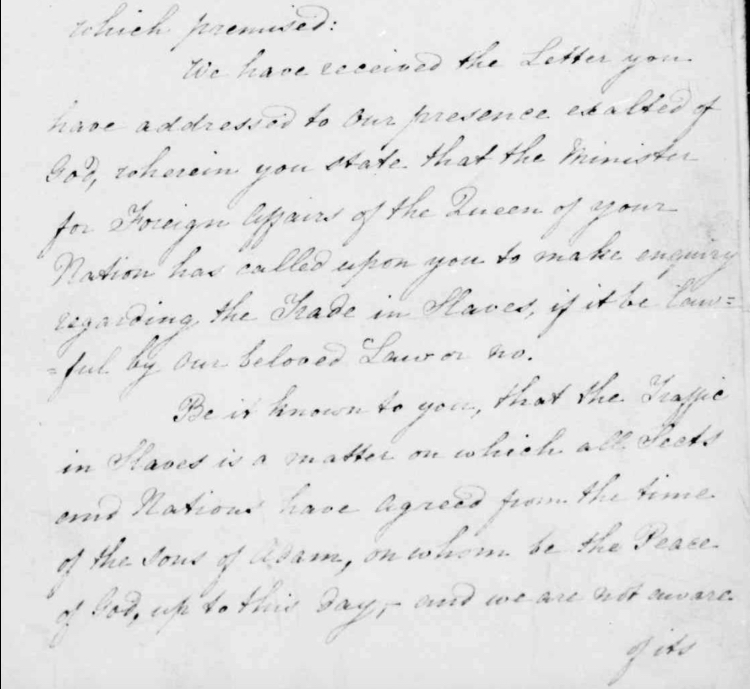 which premised:
We have received the Letter you
have addressed to Our presence exalted of
God, wherein you state that the Minister
for Foreign Affairs of the Queen of your
Nation has called upon you to make enquiry
regarding the Trade in Slaves, if it be law=
=ful by Our beloved Law or no.
Be it known to you, that the Traffic
in Slaves is a matter on which all Sects
and Nations have agreed from the time
of the sons of Adam, on whom be the Peace
of God, up to this day,- and we are not aware
of its